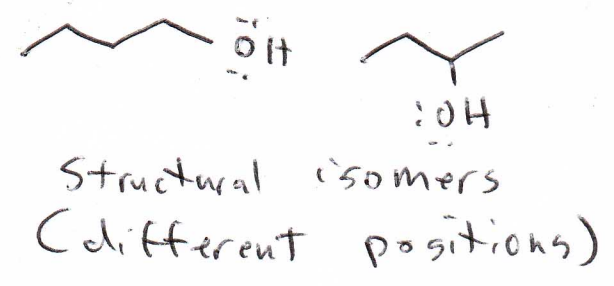 ÖH
:ÖH
Structural isomers
(different positions)